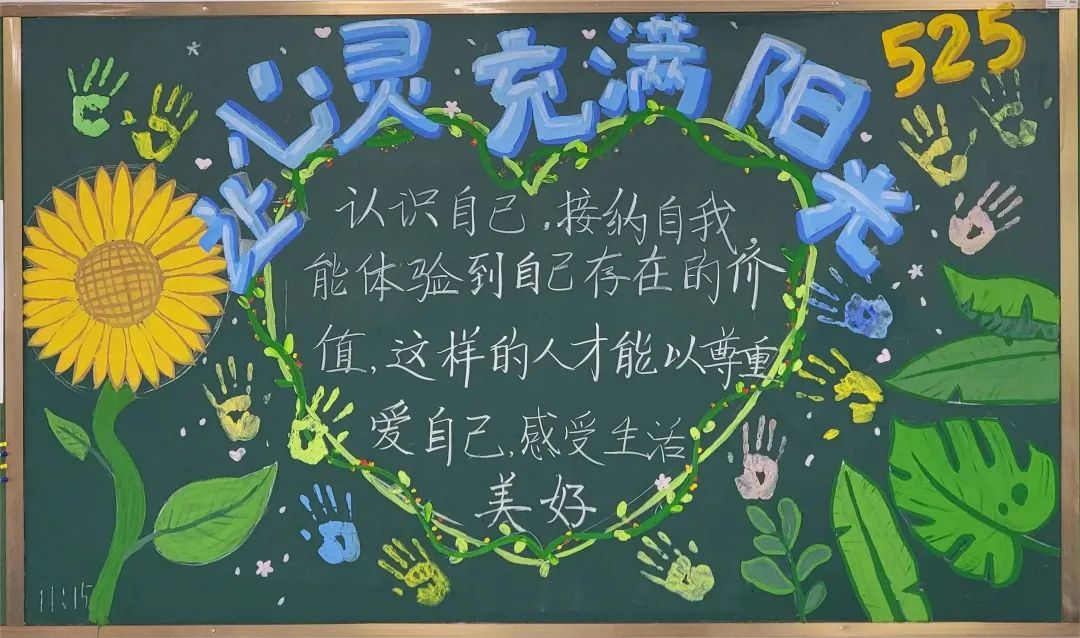 让心灵充满阳光
525
认识自己,接纳自我,
能体验到自己存在的价
值,这样的人才能以尊重
爱自己,感受生活
美好
11:15